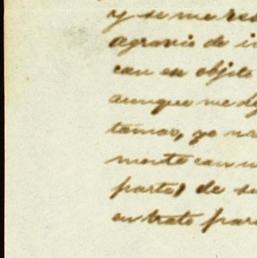 y se me res
agravio de i
con ex objeto
aunque me d
tamos, yo nr
mente con u
parto, de su
en trato par